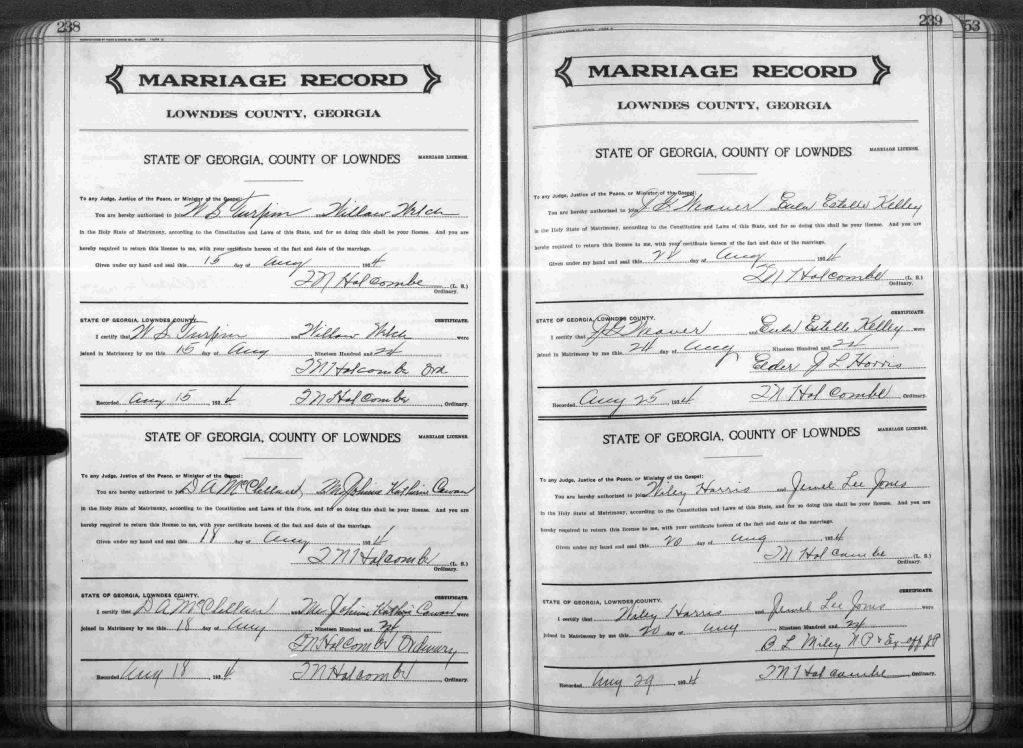 238
MARRIAGE RECORD
LOWNDES COUNTY, GEORGIA
STATE OF GEORGIA, COUNTY OF LOWNDES MARRIAGE LICENSE.
To any Judge, Justice of the Peace, or Minister of the Gospel:
You are hereby authorized to join W S Turpin and Willow Welch
in the Holy State of Matrimony, according to the Constitution and Laws of this State, and for so doing this shall be your license. And you are
hereby required to return this license to me, with your certificate hereon of the fact and date of the marriage.
Given under my hand and seal this 15 day of Aug 1924
T M Holcombe (L. S.)
Ordinary.
STATE OF GEORGIA, LOWNDES COUNTY. CERTIFICATE.
I certify that W S Turpin and Willow Welch were
joined in Matrimony by me this 15 day of Aug Nineteen Hundred and 24
T M Holcombe Ord
Recorded Aug 15, 1924 T M Holcombe Ordinary.
STATE OF GEORGIA, COUNTY OF LOWNDES MARRIAGE LICENSE.
To any Judge, Justice of the Peace, or Minister of the Gospel:
You are hereby authorized to join D A McClelland, Mrs Kathrine Cowan
in the Holy State of Matrimony, according to the Constitution and Laws of this State, and for so doing this shall be your license. And you are
hereby required to return this license to me, with your certificate hereon of the fact and date of the marriage.
Given under my hand and seal this 18 day of Aug 1924
T M Holcombe (L. S.)
Ordinary.
STATE OF GEORGIA, LOWNDES COUNTY. CERTIFICATE.
I certify that D A McClelland and Mrs Cowan were
joined in Matrimony by me this 18 day of Aug Nineteen Hundred and 24
T M Holcombe Ordinary
Recorded Aug 18, 1924 T M Holcombe Ordinary.
239
53
MARRIAGE RECORD
LOWNDES COUNTY, GEORGIA
STATE OF GEORGIA, COUNTY OF LOWNDES MARRIAGE LICENSE.
To any Judge, Justice of the Peace, or Minister of the Gospel:
You are hereby authorized to join J G Weaver Eula Estelle Kelley
in the Holy State of Matrimony, according to the Constitution and Laws of this State, and for so doing this shall be your license. And you are
hereby required to return this license to me, with your certificate hereon of the fact and date of the marriage.
Given under my hand and seal this day of Aug 1924
T M Holcombe (L. S.)
Ordinary.
STATE OF GEORGIA, LOWNDES COUNTY. CERTIFICATE.
I certify that J G Weaver and Eula Estelle Kelley were
joined in Matrimony by me this 24 day of Aug Nineteen Hundred and 24
Elder J L Harris
Recorded Aug 25, 1924 T M Holcombe Ordinary.
STATE OF GEORGIA, COUNTY OF LOWNDES MARRIAGE LICENSE.
To any Judge, Justice of the Peace, or Minister of the Gospel:
You are hereby authorized to join Wiley Harris and Jewel Lee Jones
in the Holy State of Matrimony, according to the Constitution and Laws of this State, and for so doing this shall be your license. And you are
hereby required to return this license to me, with your certificate hereon of the fact and date of the marriage.
Given under my hand and seal this 20 day of Aug 1924
T M Holcombe (L. S.)
Ordinary.
STATE OF GEORGIA, LOWNDES COUNTY. CERTIFICATE.
I certify that Wiley Harris and Jewel Lee Jones were
joined in Matrimony by me this 20 day of Aug Nineteen Hundred and 24
B L Miley N P & Ex off J P
Recorded Aug 29, 1924 T M Holcombe Ordinary.